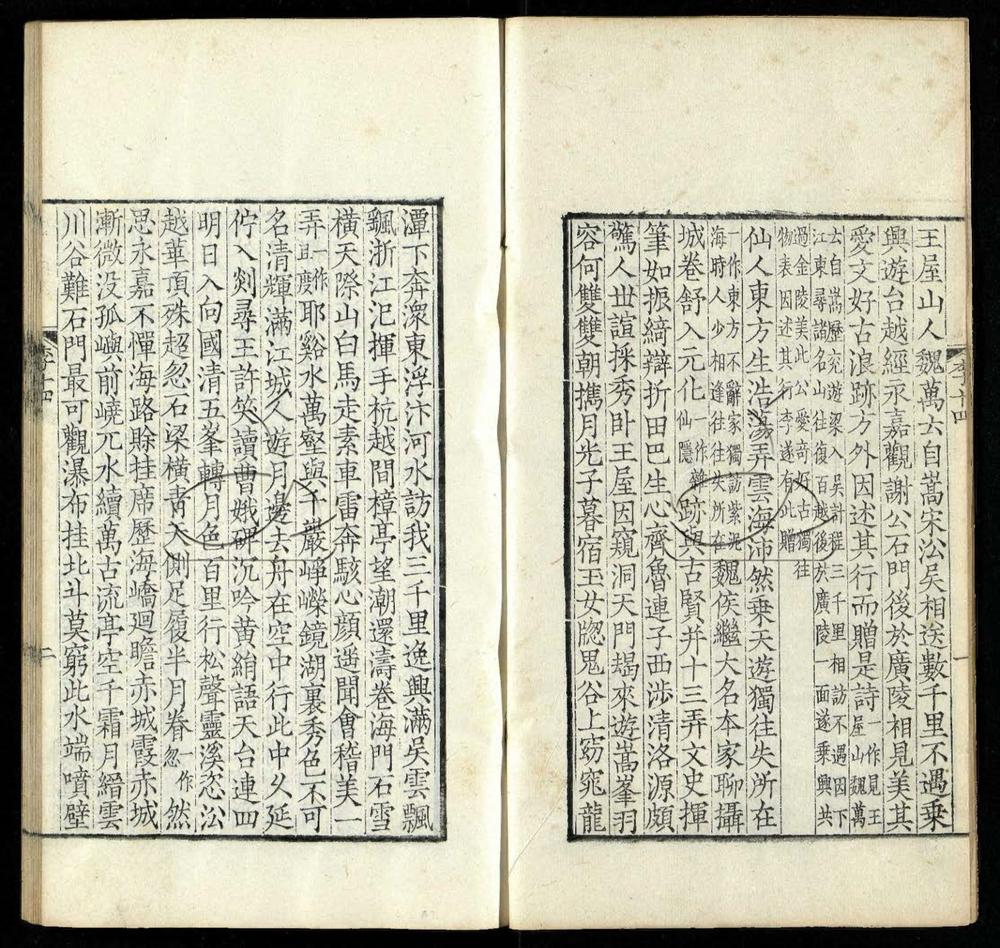 王屋山人魏萬云自嵩宋㳂吳相送數千里不遇乗
興遊台越經永嘉觀謝公石門後於廣陵相見美其
愛文好古浪跡方外因述其行而贈是詩一作見王屋山魏萬
云自嵩歷兖遊梁入吳計程三千里相訪不遇因下
江東尋諸名山往復百越後於廣陵一面遂乗興共
過金陵美此公愛奇好古獨往
物表因述其行李遂有此贈
仙人東方生浩蕩弄雲海沛然乗天遊獨往失所在
一作東方不辭家獨訪紫泥海時人少相逢往往失所在魏侯繼大名本家聊攝
城卷舒入元化一作仙隱跡與古賢并十三弄文史揮
筆如振綺辯折田巴生心齊魯連子西涉清洛源頗
驚人世諠採秀卧王屋因窺洞天門朅來遊嵩峯羽
容何雙雙朝攜月光子暮宿玉女牕鬼谷上窈窕龍
李十四
一
潭下奔潨東浮汴河水訪我三千里逸興滿吳雲飄
飖浙江汜揮手杭越間樟亭望潮還濤卷海門石雪
橫天際山白馬走素車雷奔駭心顔遥聞會稽美一
弄一作且度耶谿水萬壑與千巖崢嶸鏡湖裏秀色不可
名清輝滿江城人遊月邊去舟在空中行此中乆延
佇入剡尋王許笑讀曹娥碑沉吟黄絹語天台連四
明日入向國清五峯轉月色百里行松聲靈溪恣㳂
越華頂殊超忽石梁橫青天側足履半月眷一作忽然
思永嘉不憚海路賒挂席歷海嶠迴瞻赤城霞赤城
漸微没孤嶼前嶢兀水續萬古流亭空千霜月縉雲
川谷難石門最可觀瀑布挂北斗莫窮此水端噴壁
李十四
二